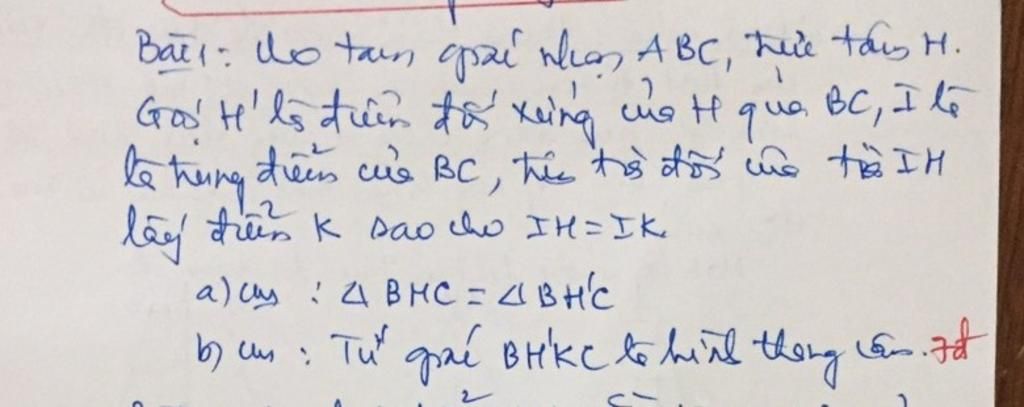 Bài 1: Cho tam giác nhọn ABC, trực tâm H.
Gọi H' là điểm đối xứng của H qua BC, I là
là trung điểm của BC, trên tia đối của tia IH
lấy điểm K sao cho IH = IK
a) cm : △BHC = △BH'C
b) cm : Tứ giác BH'KC là hình thang cân. 7đ